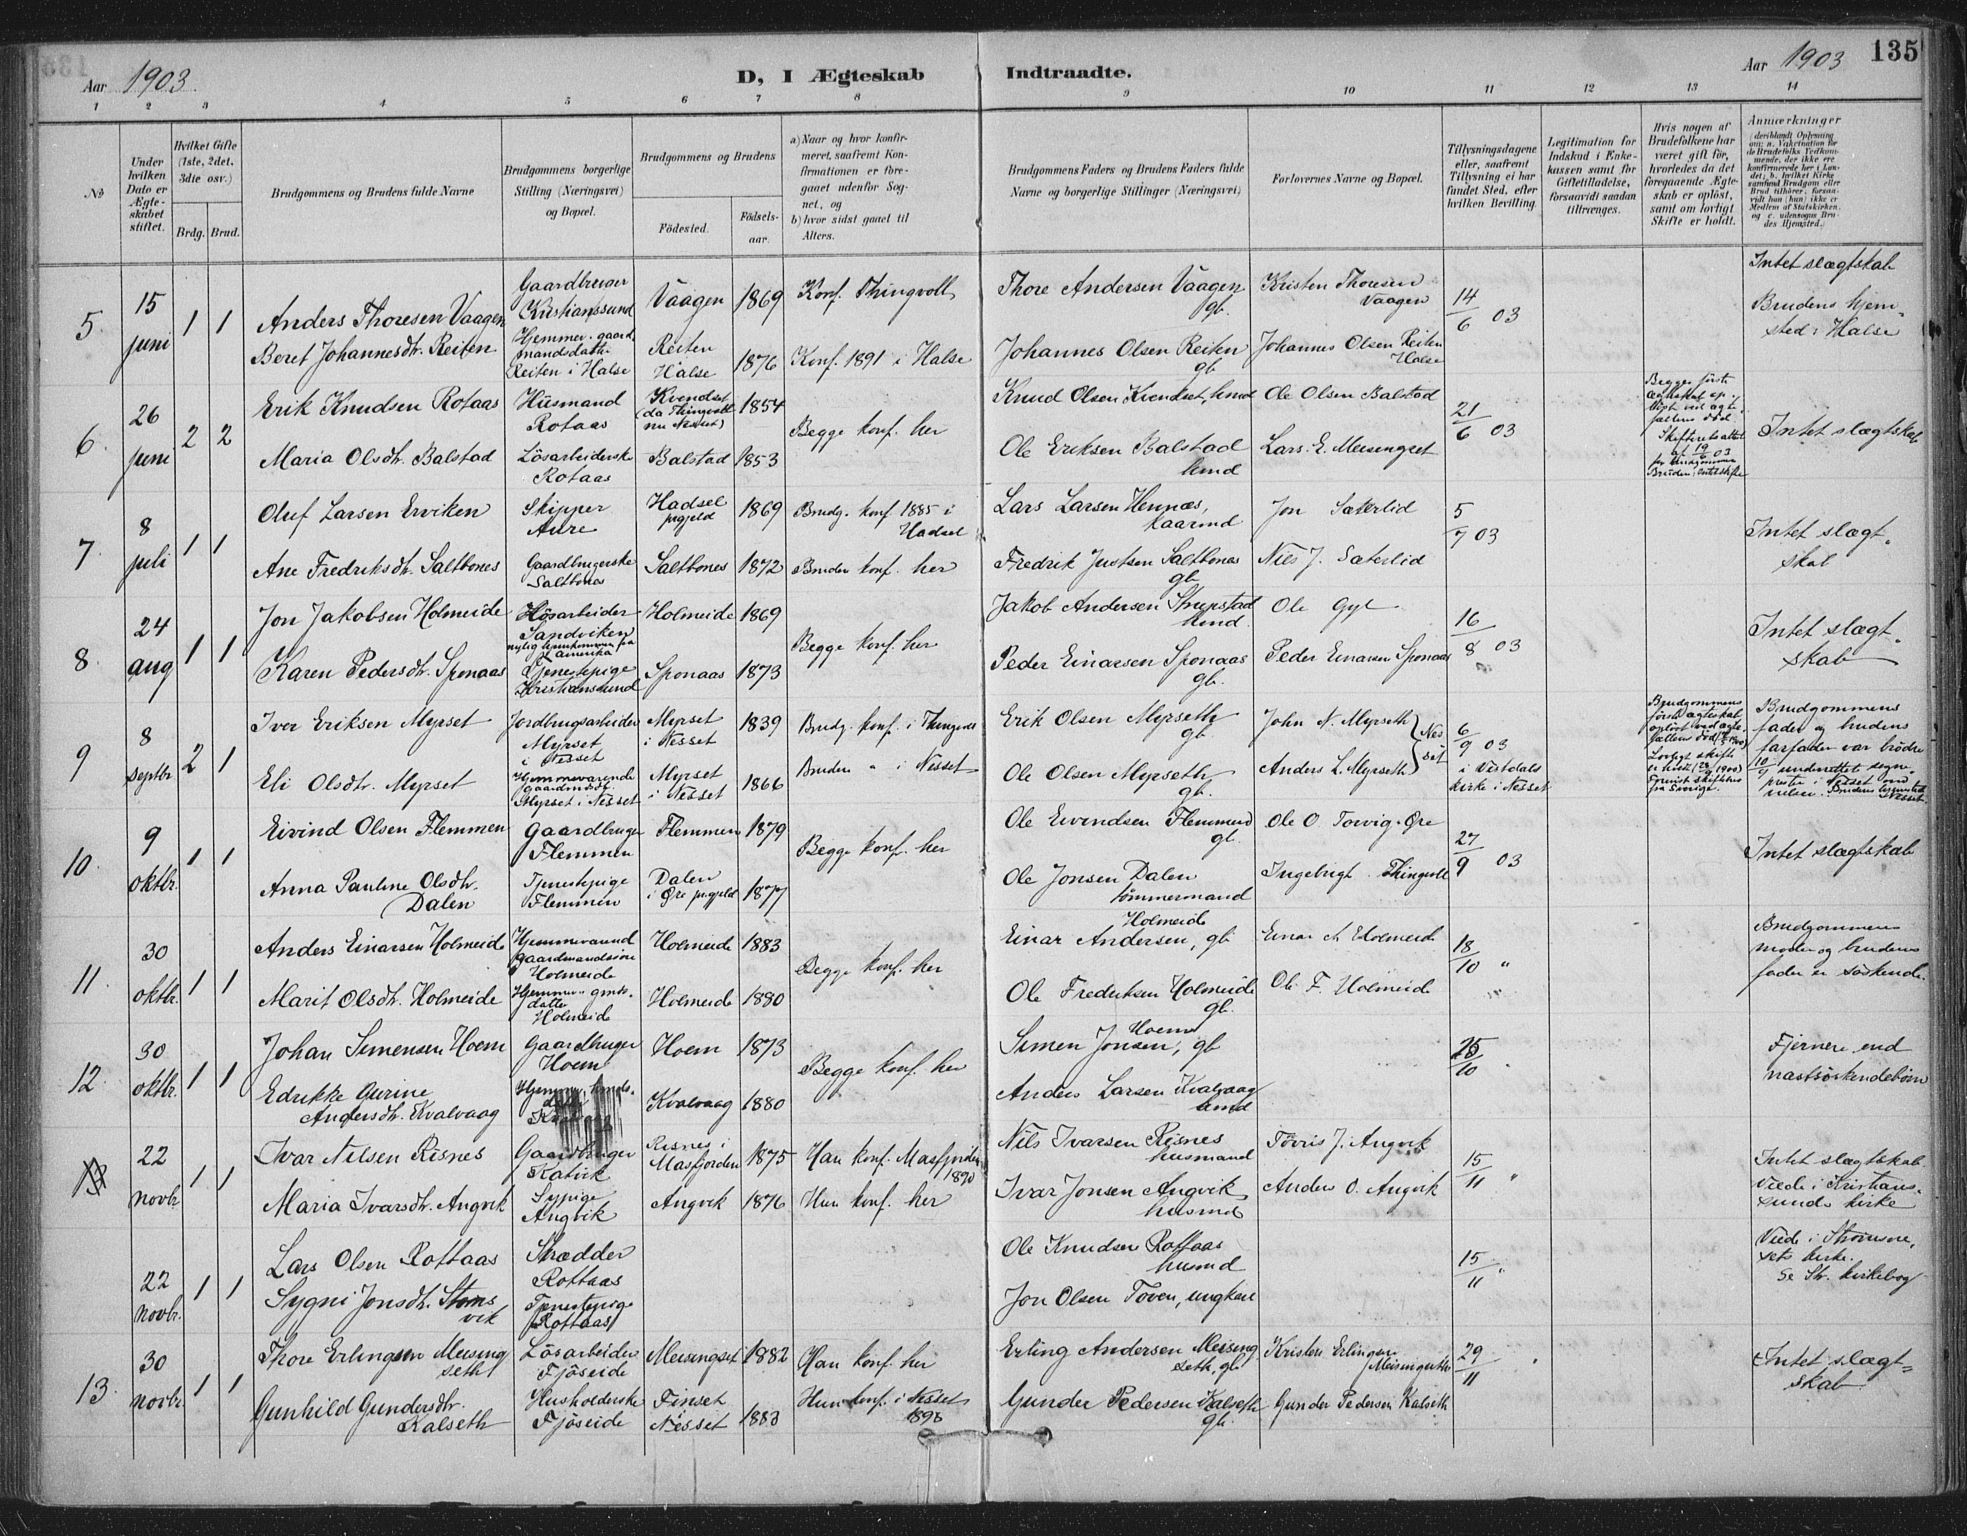 135
Aar 1903.
D, I Ægteskab
Indtraadte.
Aar 1903
1 2 3 4 5 6 7 8 9 10 11 12 13 14
No
Under hvilken Dato er Ægteskabet stiftet.
Hvilket Gifte (1ste, 2det, 3die osv.)
Brdg. Brud.
Brudgommens og Brudens fulde Navne
Brudgommens borgerlige Stilling (Næringsvei) og Bopæl.
Brudgommens og Brudens
Fødested.
Fødselsaar.
a) Naar og hvor konfirmeret, saafremt Konfirmationen er foregaaet udenfor Sognet, og
b) hvor sidst gaaet til Alters.
Brudgommens Faders og Brudens Faders fulde Navne og borgerlige Stillinger (Næringsvei)
Forlovernes Navne og Bopæl.
Tillysningsdagene eller, saafremt Tillysning ei har fundet Sted, efter hvilken Bevilling.
Legitimation for Indskud i Enkekassen samt for Giftetilladelse, forsaavidt saadan tiltrænges.
Hvis nogen af Brudefolkene har været gift før, hvorledes da det foregaaende Ægteskab er opløst, samt om lovligt Skifte er holdt.
Anmærkninger
(deriblandt Oplysning om: a. Vakcination for de Brudefolks Vedkommende, der ikke ere konfirmerede her i Landet; b. hvilket Kirkesamfund Brudgom eller Brud tilhører, forsaavidt han (hun) ikke er Medlem af Statskirken, og c. udensogns Brudes Hjemsted.)
5 15 juni 1 1
Anders Thoresen Vaagen
Gaardbruger Kristianssund
Vaagen 1869
Konf. Thingvoll
Thore Andersen Vaagen gb.
Kristen Thoresen Vaagen
14/6 03
Intet slægtskab
Brudens hjemsted: Halse
Beret Johannesdtr. Reiten
Hjemmev. gaardmandsdatt. Reiten i Halse
Reiten Halse 1876
Konf. 1891 i Halse
Johannes Olsen Reiten gb.
Johannes Olsen Reiten Halse
6 26 juni 2 2
Erik Knudsen Rotaas
Husmand Rotaas
Kvendset (da Thingvoll nu Nesset) 1854
Begge konf. her
Knud Olsen Kvendset, hmd
Ole Olsen Balstad
21/6 03
Intet slægtskab
Maria Olsdtr. Balstad
Løsarbeiderske Rotaas
Balstad 1853
Ole Eriksen Balstad hmd
Lars E. Meisingset
7 8 juli 1 1
Oluf Larsen Erviken
Skipper Aure
Hadsel prgjeld 1869
Brudg. konf 1885 i Hadsel
Lars Larsen Hennæs, kaarmd
Jon Sæterlid
5/7 03
Intet slægtskab
Ane Fredriksdtr. Saltbones
Gaardbrugerske Saltbones
Saltbones 1872
Bruden konf. her
Fredrik Justsen Saltbones gb
Nils J. Sæterlid
8 24 aug 1 1
Jon Jakobsen Holmeide
Løsarbeider Sandviken nylig hjemkommen fra Amerika
Holmeide 1869
Begge konf. her
Jakob Andersen Strupstad hmd.
Ole Gyl
16/8 03
Intet slægtskab
Karen Pedersdtr. Sponaas
Tjenestepige Kristianssund
Sponaas 1873
Peder Einarsen Sponaas gb.
Peder Einarsen Sponaas
9 8 septbr 2 1
Iver Eriksen Myrset
Jordbrugsarbeider Myrset i Nesset
Myrset i Nesset 1839
Brudg. konf. i Thingvoll
Erik Olsen Myrseth gb
John N. Myrseth } Nesset
6/9 03 i Vistdals kirke i Nesset
Brudgommens første ægteskab opløst ved ægtefællens død
Brudgommens fader og brudens farfader var brødre
Eli Olsdtr. Myrset
Hjemmeværende gaardmdsdt. Myrset i Nesset
Myrset i Nesset 1866
Bruden " i Nesset
Ole Olsen Myrseth gb.
Anders L. Myrseth
10 9 oktbr. 1 1
Eivind Olsen Flemmen
Gaardbruger Flemmen
Flemmen 1879
Begge konf. her
Ole Eivendsen Flemmen gb.
Ole O Torvig. Øre
27/9 03
Intet slægtskab
Anna Pauline Olsdtr. Dalen
Tjenestepige Flemmen
Dalen i Øre prgjeld 1877
Ole Jonsen Dalen tømmermand
Ingebrigt Thingvoll
11 30 oktbr. 1 1
Anders Einarsen Holmeide
Hjemmeværend gaardmandssøn Holmeide
Holmeide 1883
Begge konf. her
Einar Andersen Holmeide, gb
Einar A Holmeide
18/10 "
Brudgommens moder og brudens fader er søskende.
Marit Olsdtr. Holmeide
Hjemmev. gmdsdatter Holmeide
Holmeide 1880
Ole Fredriksen Holmeide gb.
Ole F. Holmeide
12 30 oktbr. 1 1
Johan Simensen Hoem
Gaardbruger Hoem
Hoem 1873
Begge konf. her
Simen Jonsen Hoem, gb
25/10
Fjernere end næstsøskendebørn
Edrikke Gurine Andersdtr. Kvalvaag
Kvalvaag 1880
Anders Larsen Kvalvaag hmd
13 22 novbr. 1 1
Ivar Nilsen Risnes
Gaardbruger Kalvik
Risnes i Masfjorden 1875
Han konf. Masfjorden 1890
Nils Ivarsen Risnes husmand
Torris J. Angvik
15/11 "
Intet slægtskab. Viede i Kristianssunds kirke
Maria Ivarsdtr. Angvik
Sypige Angvik
Angvik 1876
Hun konf. her
Ivar Jonsen Angvik husmd
Anders O. Angvik
22 novbr. 1 1
Lars Olsen Rottaas
Skrædder Rottaas
Ole Knudsen Rottaas husmd
15/11 "
Viede i Strømsnesets kirke. Se Str. kirkebog
Sygni Jonsdtr. Stomsvik
Tjenestepige Rottaas
Jon Olsen Toven, ungkarl
13. 30 novbr. 1 1
Thore Erlingsen Meisingseth
Løsarbeider Fjøseide
Meisingset 1882
Han konf. her
Erling Andersen Meisingseth, gb
Kristen Erlingsen Meisingseth
29/11 "
Intet slægtskab
Gunhild Gundersdtr. Kalseth
Husholderske Fjøseide
Finset Nesset 1883
Hun konf. i Nesset 1898
Gunder Pedersen Kalseth gb.
Gunder Pedersen Kalseth